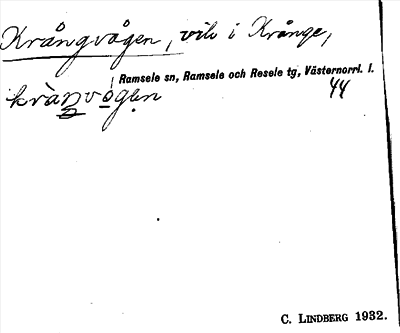 Krångvågen, vik i Krånge,
Ramsele sn, Ramsele och Resele tg, Västernorrl. l.
kràŋvogen 44
C. LINDBERG 1932.